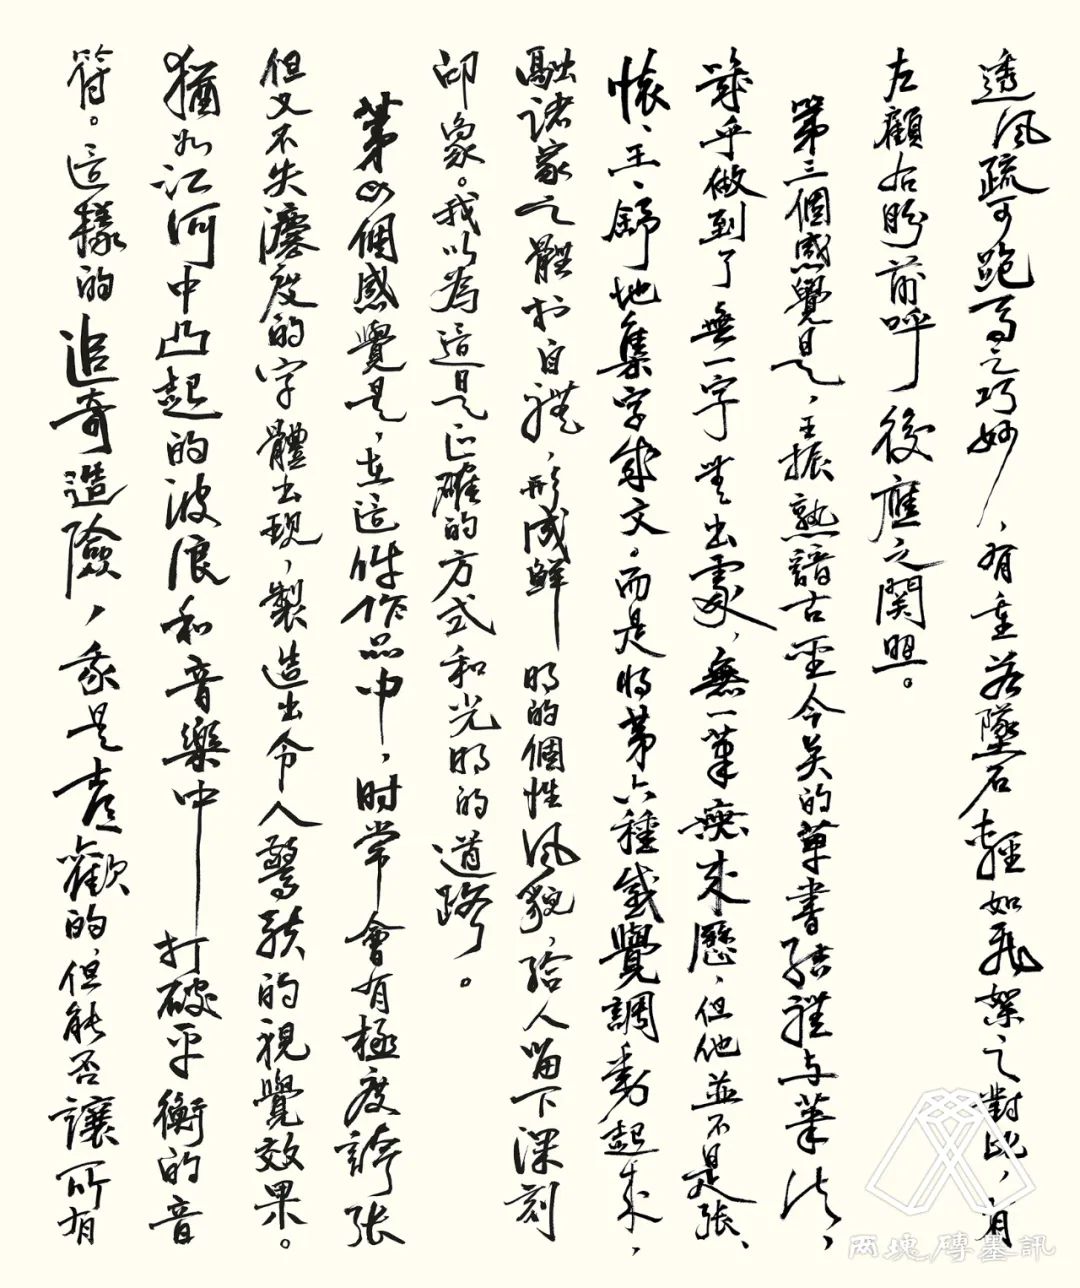 透風疏可跑馬之巧妙，有重若墜石輕如飛絮之對比，有
左顧右盼前呼後應之関照。
第三個感覺是，王振熟諳古聖今賢的草書結體与筆法，
幾乎做到了無一字無出處，無一筆無來歷，但他並不是張、
懷、王、舒地集字成文。而是將第六種感覺調動起來，
融諸家之體於自體，形成鮮明的個性風貌，給人留下深刻
印象。我以為這是正確的方式和光明的道路。
第四個感覺是，在這件作品中，时常會有極度誇张
但又不失灋度的字體出現，製造出令人驚駭的視覺效果。
猶如江河中凸起的波浪和音樂中打破平衡的音
符。這樣的追奇造險，我是喜歡的，但能否讓所有
两塊磚墨訊